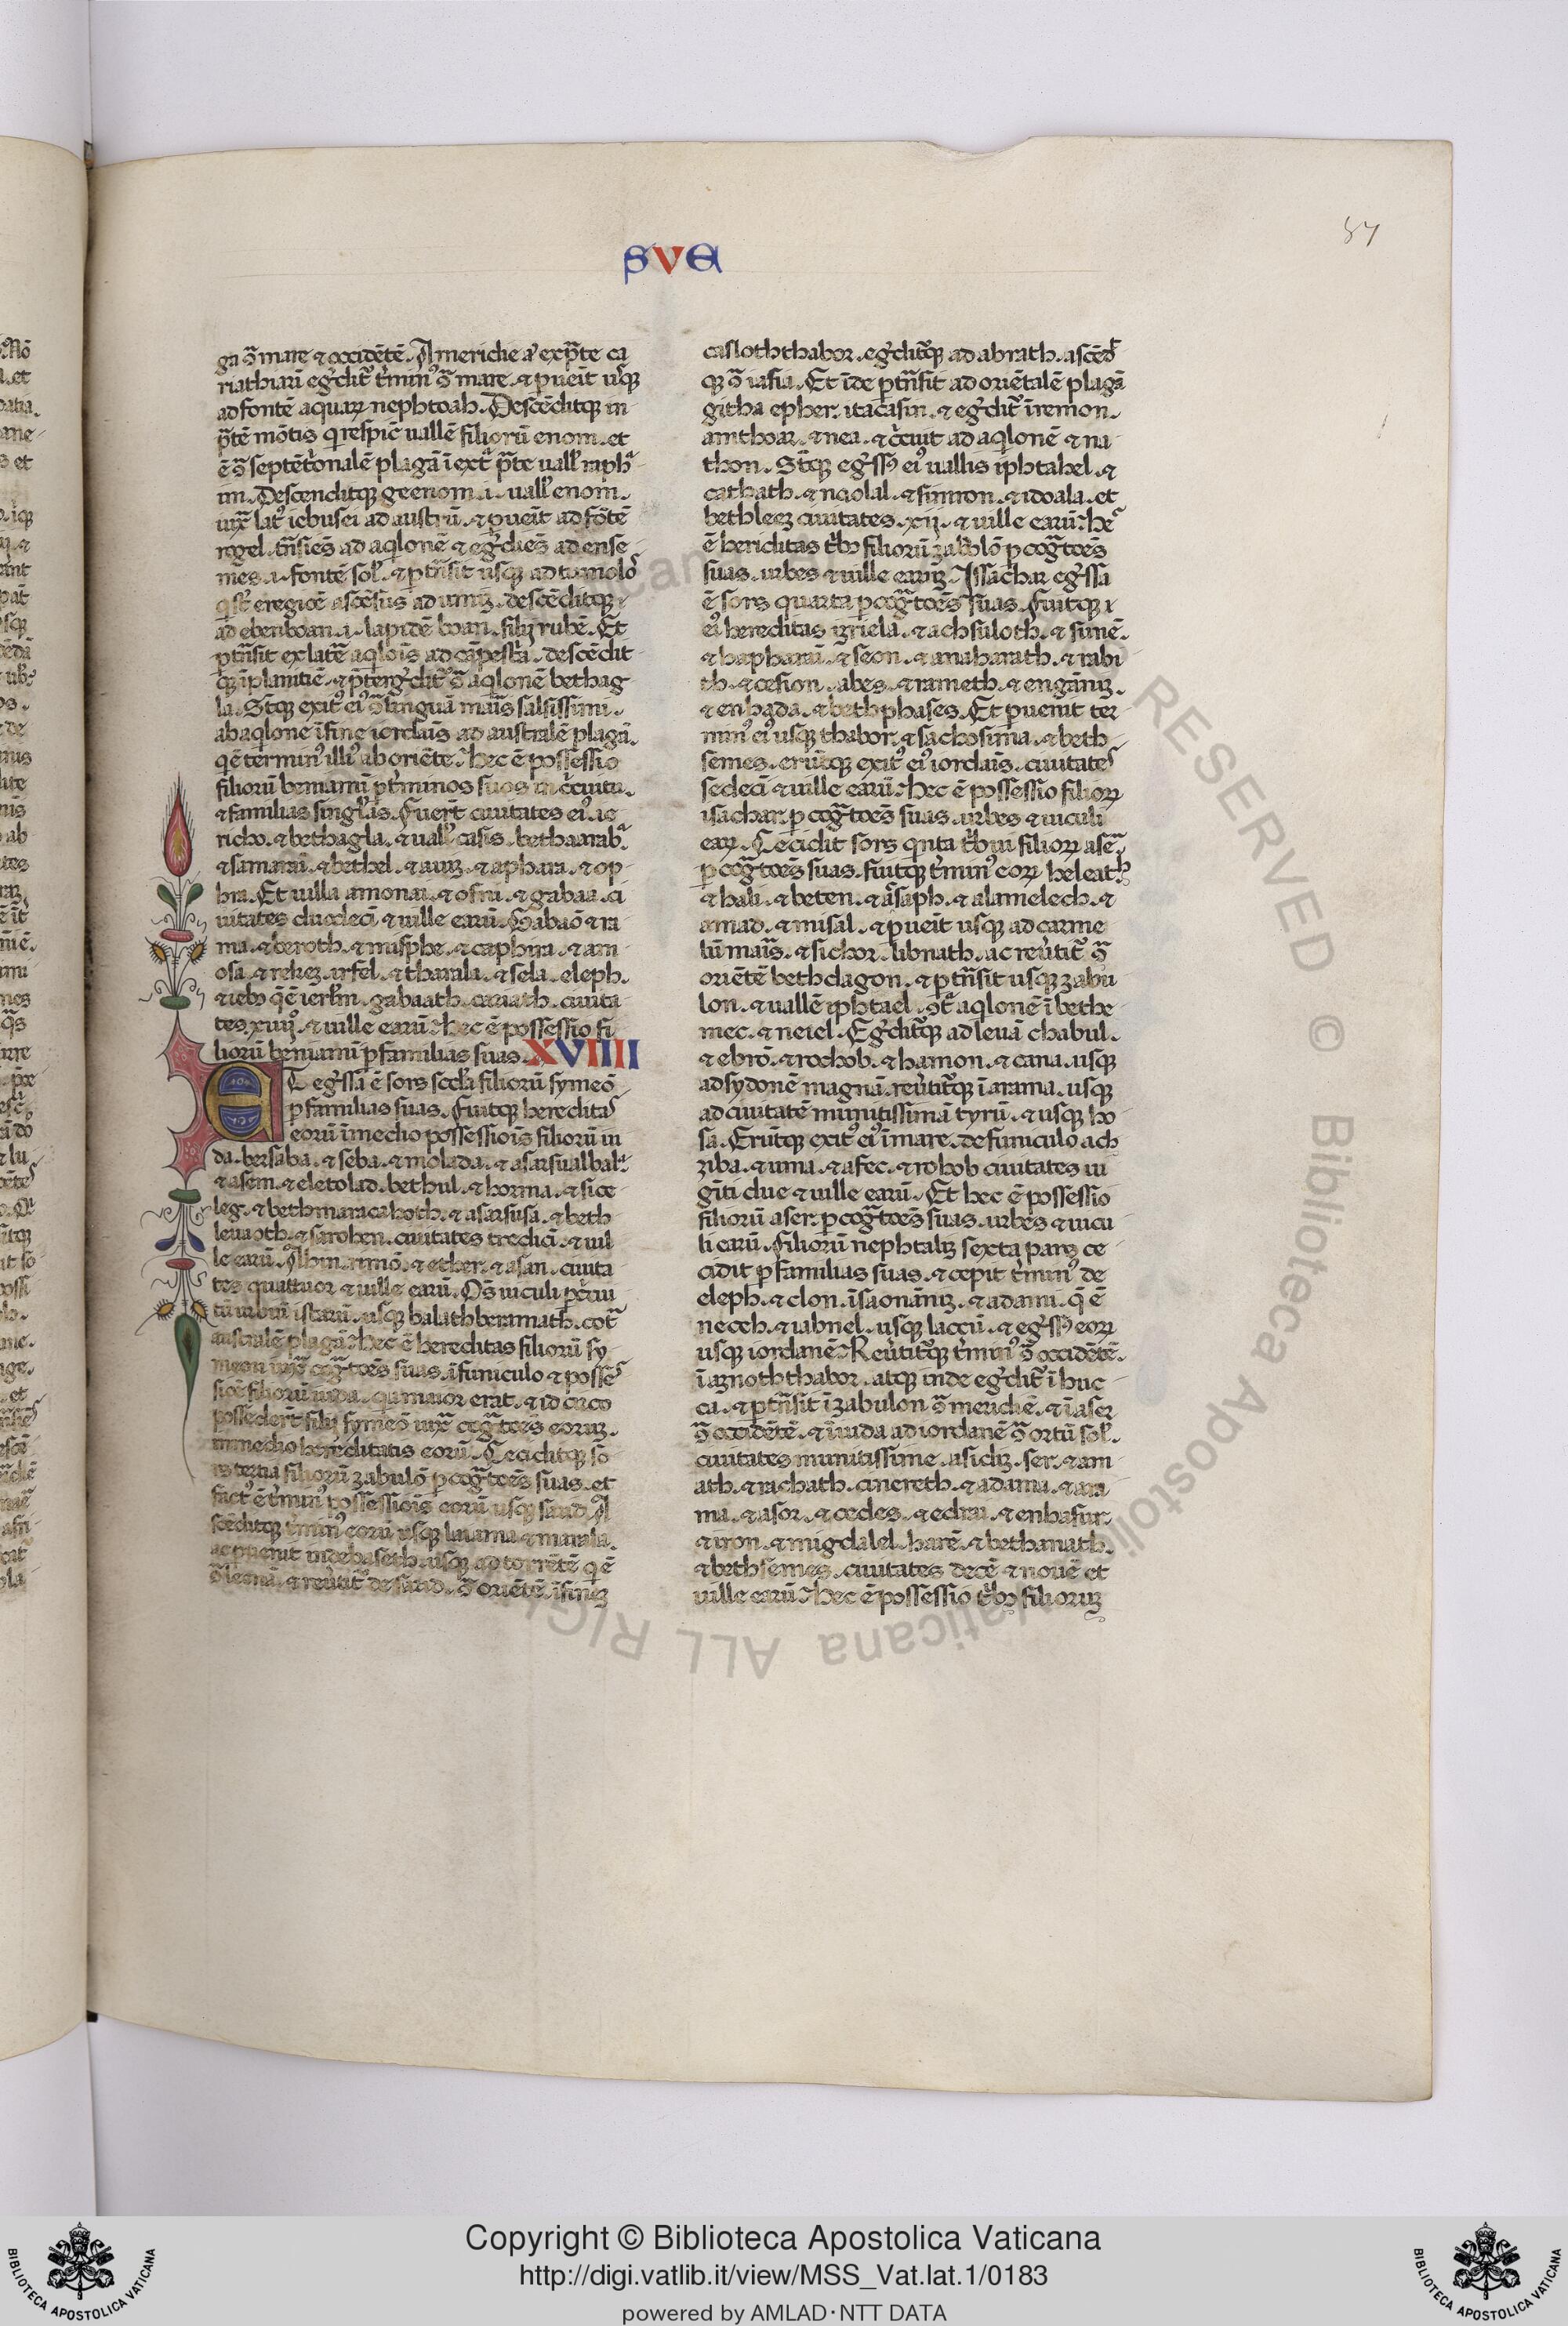 SVE
87
ga ꝯ̃ mare ⁊ occidẽtẽ. A meridie aũ ex p̃te ca
riathiarĩ eg̃ditꝰ t̃minꝰ ꝯ̃ mare. ⁊ puenit usqꝫ
ad fontẽ aquarꝝ nephtoah. Descẽditqꝫ in
p̃tẽ mõtis q̃ respic̃ uallẽ filiorũ enom. et
ẽ ꝯ̃ septẽt̃onalẽ plagã ĩ ext̃ p̃te uall̃ raph̃
im. Descenditqꝫ geenom .i. uall̃ enom.
iux̃ latꝰ iebusei ad austrũ. ⁊ puenit ad fõtẽ
rogel. t̃nsiẽs ad aq̃lonẽ ⁊ eg̃diẽs ad ense
mẽs .i. fontẽ sol̃. ⁊ p̃t̃nsit usqꝫ ad tumolos
q̃ st̃ e regiõe ascẽsus adumiꝫ. descẽditqꝫ
ad ebenboan .i. lapidẽ boan. filij rubẽ. Et
p̃t̃nsit ex latẽ aq̃lois̃ ad cãpest̃a. descẽdit
qꝫ ĩ planitiẽ. ⁊ p̃terg̃dit̃ ꝯ̃ aq̃lonẽ bethag
la. Sĩtqꝫ exitꝰ eiꝰ ꝯ̃ linguã mar̃is salsissimi.
ab aq̃lone ĩ fine iordaĩs ad australẽ plagã.
q̃ ẽ terminꝰ illiꝰ ab oriẽte. hec ẽ possessio
filiorũ beniamĩ p t̃minos suos in c̃cuitu.
⁊ familias singl̃as. Fuer̃t ciuitates eiꝰ. ie
richo. ⁊ bethagla. ⁊ uall̃ casis. betharab̃
⁊ samaraĩ. ⁊ bethel. ⁊ auiꝫ. ⁊ aphara. ⁊ op
hra. Et uilla amonai. ⁊ ofni. ⁊ gabaa. ci
uitates duodecĩ ⁊ uille earũ. Gabaõ ⁊ ra
ma. ⁊ beroth. ⁊ mesphe. ⁊ caphira. ⁊ am
osa. ⁊ rekeꝫ. irfel. ⁊ tharala. ⁊ sela. eleph.
⁊ iebꝯ q̃ ẽ ierl̃m. gabaath. cariath. ciuita
tes xiiijꝰ. ⁊ uille earũ. hec ẽ possessio fi
liorũ beniamĩ p familias suas. XVIIII
ET eg̃ssa ẽ sors sc̃da filiorũ symeõ
p familias suas. Fuitqꝫ heredita᷒
eorũ ĩ medio possessiois̃ filiorũ iu
da. bersaba. ⁊ seba. ⁊ molada. ⁊ asarsual bal̃.
⁊ asem. ⁊ eletolad. bethul. ⁊ horma. ⁊ sice
leg. ⁊ bethmaracaboth. ⁊ asarsusa. ⁊ beth
leuaoth. ⁊ sarohen. ciuitates tredecĩ. ⁊ uil
le earũ. Ahin. rimõ. ⁊ ether. ⁊ asan. ciuita
tes quattuor ⁊ uille earũ. Oẽs uiculi p c̃cui
tũ urbiũ istarũ. usqꝫ balath beramath. cõt̃
australẽ plagã. hec ẽ hereditas filiorũ sy
meon iux̃ cog̃toẽs suas. ĩ funiculo ⁊ posse᷒
siõe filiorũ iuda. qui maior erat. ⁊ id circo
posseder̃t filij symeõ iux̃ cog̃toẽs eoruꝫ.
in medio hereditatis eorũ. Ceciditqꝫ so
rs tertia filiorũ zabulõ p cog̃toẽs suas. et
factꝰ ẽ t̃minꝰ possessiois̃ eorũ usqꝫ sarid. A
scẽditqꝫ t̃minꝰ eorũ usqꝫ laiama ⁊ marala.
ac puenit in debaseth. usqꝫ ad torrẽtẽ q̃ ẽ
ꝯ̃ iecnã. ⁊ reũtit̃ de sarid. ꝯ̃ oriẽtẽ. ĩ finiꝫ
casloth thabor. eg̃ditqꝫ ad abrath. ascẽd᷒
qꝫ ꝯ̃ iafia. Et ĩde p̃t̃nsit ad oriẽtalẽ plagã
githa epher. itacasin. ⁊ eg̃dit̃ ĩ remon.
amthoar. ⁊ nea. ⁊ c̃cuit ad aq̃lonẽ ⁊ na
thon. Sĩtqꝫ eg̃ssꝰ eiꝰ uallis iphtahel. ⁊
cathath. ⁊ naolal. ⁊ simron. ⁊ idoala. et
bethleeꝫ ciuitates .xij. ⁊ uille earũ. hec
ẽ heriditas t̃bꝯ filiorũ zabulõ p cog̃toẽs
suas. urbes ⁊ uille earuꝫ. Issachar eg̃ssa
ẽ sors quarta p cog̃toẽs suas. Fuitqꝫ
eiꝰ hereditas izriela. ⁊ achsuloth. ⁊ sunẽ.
⁊ hapharaĩ. ⁊ seon. ⁊ anaharath. ⁊ rabi
th. ⁊ cesion. abes. ⁊ rameth. ⁊ enganiꝫ.
⁊ enhada. ⁊ bethphases. Et puenit ter
minꝰ eiꝰ usqꝫ thabor. ⁊ sachosima. ⁊ beth
semes. erũtqꝫ exitꝰ eiꝰ iordaĩs. ciuitate᷒
sedecĩ ⁊ uille earũ. hec ẽ possessio filioꝝ
isachar. p cog̃toẽs suas. urbes ⁊ uiculi
earꝝ. Cecidit sors q̃nta t̃bui filioꝝ aser̃
p cog̃toẽs suas. fuitqꝫ t̃minꝰ eoꝝ heleath
⁊ hali. ⁊ beten. ⁊ asaph. ⁊ alamelech. ⁊
amad. ⁊ misal. ⁊ puenit usqꝫ ad carme
lũ mar̃is. ⁊ sichor. libnath. ac reũtit̃ ꝯ̃
oriẽtẽ bethdagon. ⁊ p̃t̃nsit usqꝫ zabu
lon. ⁊ uallẽ iphtael. ꝯt̃ aq̃lonẽ ĩ bethe
mec. ⁊ neiel. Eg̃ditqꝫ ad leuã chabul.
⁊ ebrõ. ⁊ rochob. ⁊ hamon. ⁊ cana. usqꝫ
ad sydonẽ magnã. reũtitqꝫ ĩ arama. usqꝫ
ad ciuitatẽ munitissimã tyrũ. ⁊ usqꝫ ho
sa. Erũtqꝫ exitꝰ eiꝰ ĩ mare. de funiculo ach
ziba. ⁊ uma. ⁊ afec. ⁊ rohob ciuitates ui
gĩti due ⁊ uille earũ. Et hec ẽ possessio
filiorũ aser. p cog̃toẽs suas. urbes ⁊ uicu
li earũ. Filiorũ nephtaliꝫ sexta pars ce
cidit p familias suas. ⁊ cepit t̃minꝰ de
eleph. ⁊ elon. ĩ saonãniꝫ. ⁊ adami. q̃ ẽ
neceb. ⁊ iabnel. usqꝫ laccũ. ⁊ eg̃ssꝰ eoꝝ
usqꝫ iordanẽ. Reũtitqꝫ t̃minꝰ ꝯ̃ occidẽtẽ.
ĩ aznoth thabor. atqꝫ inde eg̃dit̃ ĩ huc
ca. ⁊ p̃t̃nsit ĩ zabulon ꝯ̃ meridiẽ. ⁊ ĩ aser
ꝯ̃ occidẽtẽ. ⁊ ĩ iuda ad iordanẽ ꝯ̃ ortũ sol̃.
ciuitates munitissime. asidiꝫ. ser. ⁊ am
ath. ⁊ rachath. cinereth. ⁊ adama. ⁊ ara
ma. ⁊ asor. ⁊ cedes. ⁊ edrai. ⁊ enhasur.
⁊ iron. ⁊ migdalel. harẽ. ⁊ bethanath.
⁊ bethsemes. ciuitates decẽ ⁊ nouẽ et
uille earũ. hec ẽ possessio t̃bꝯ filioruꝫ
Copyright © Biblioteca Apostolica Vaticana
http://digi.vatlib.it/view/MSS_Vat.lat.1/0183
powered by AMLAD·NTT DATA